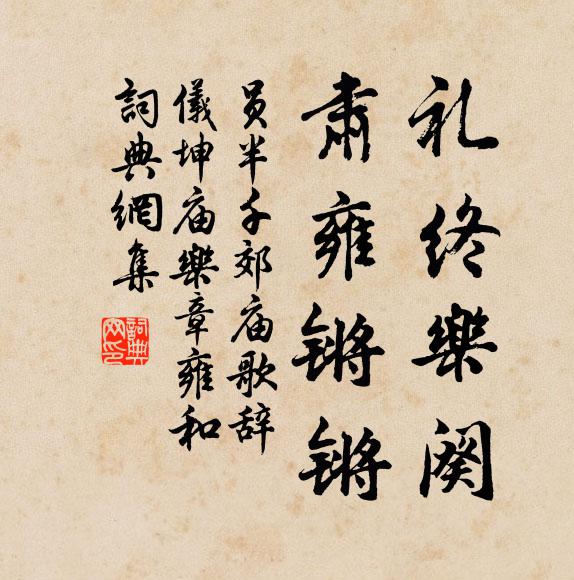 礼终樂阕
肃雍锵锵
员半千郊庙歌辞
儀坤庙樂章雍和
詞典網集
詞典网印